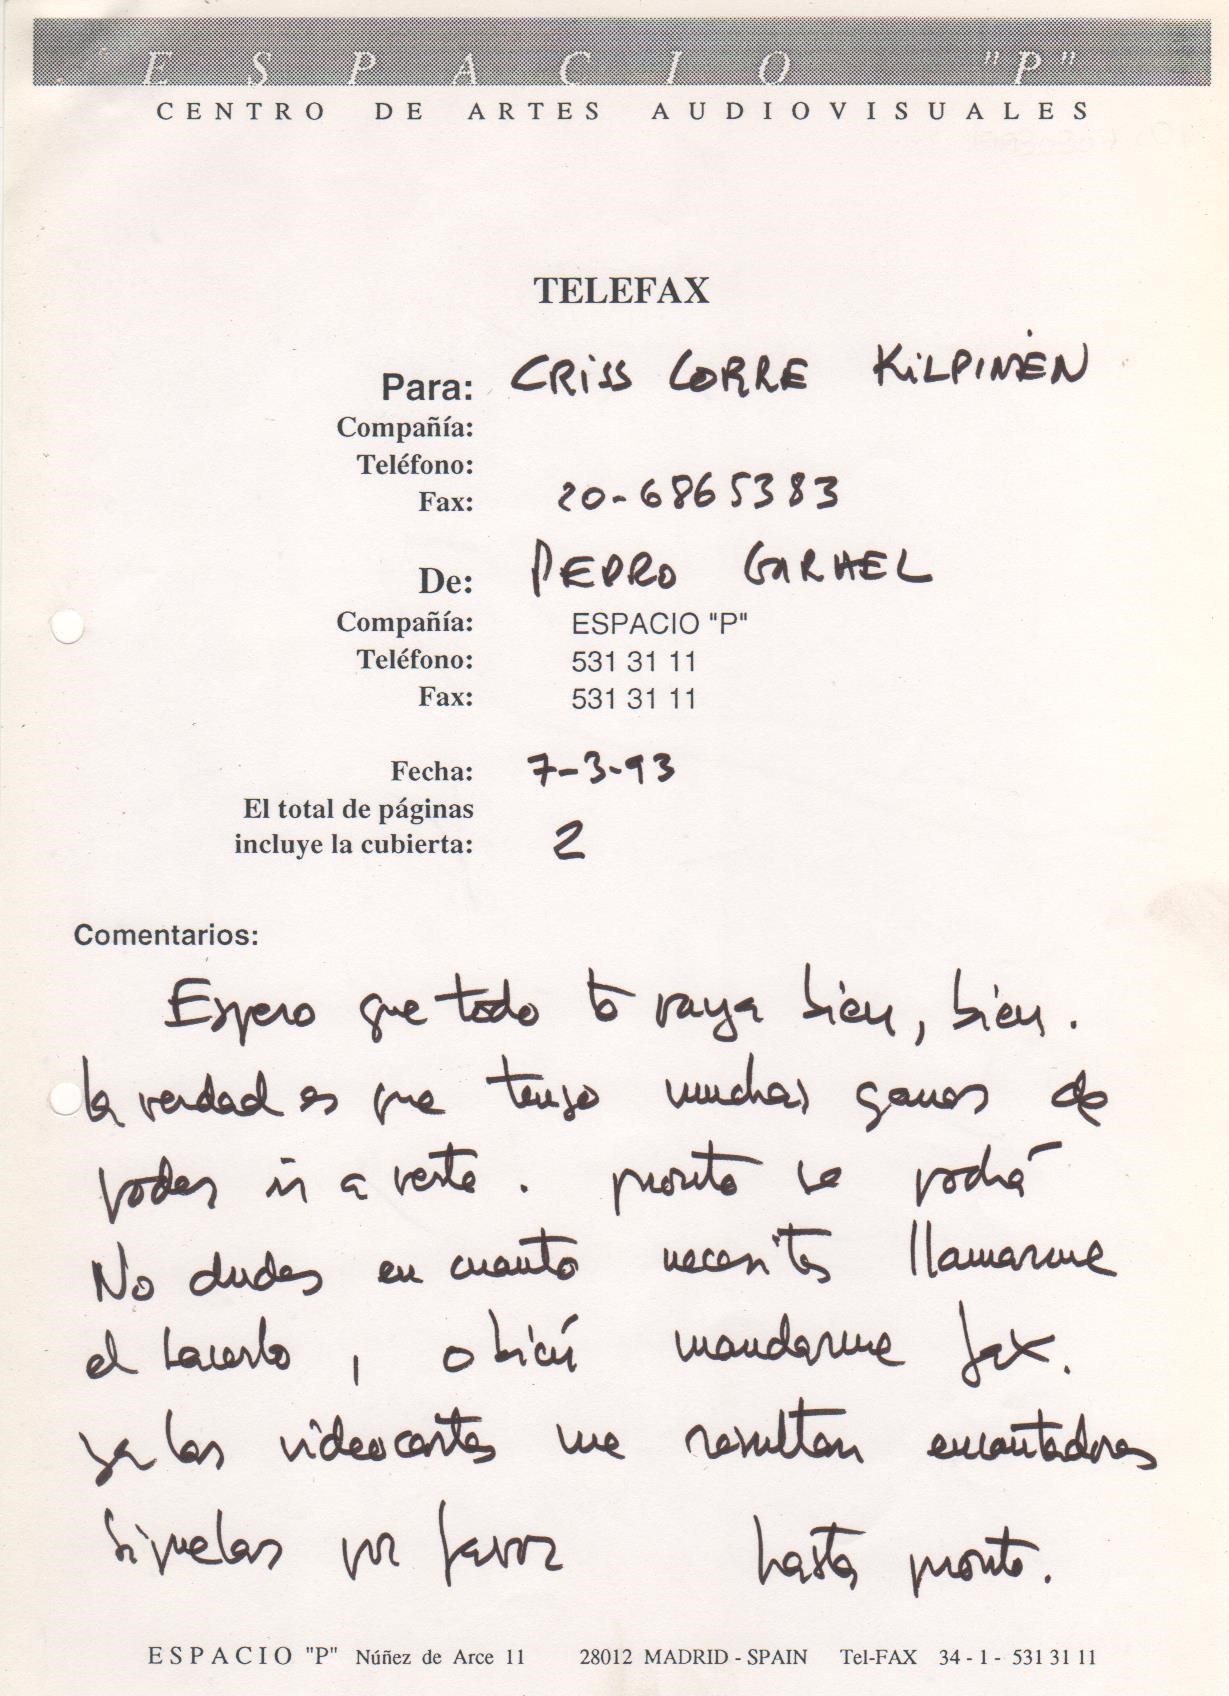 ESPACIO "P"
CENTRO DE ARTES AUDIOVISUALES
TELEFAX
Para: CRISS CORRE KILPINEN
Compañía:
Teléfono:
Fax: 20-6865383
De: PEDRO GARHEL
Compañía: ESPACIO "P"
Teléfono: 531 31 11
Fax: 531 31 11
Fecha: 7-3-93
El total de páginas
incluye la cubierta: 2
Comentarios:
Espero que todo te vaya bien, bien.
la verdad es que tengo muchas ganas de
poder ir a verte. pronto se podrá
No dudes en cuanto necesites llamarme
el hacerlo, o bien mandarme fax.
ya las videocartas me resultan encantadoras
Siguelas por favor hasta pronto.
ESPACIO "P" Núñez de Arce 11 28012 MADRID - SPAIN Tel-FAX 34 - 1 - 531 31 11